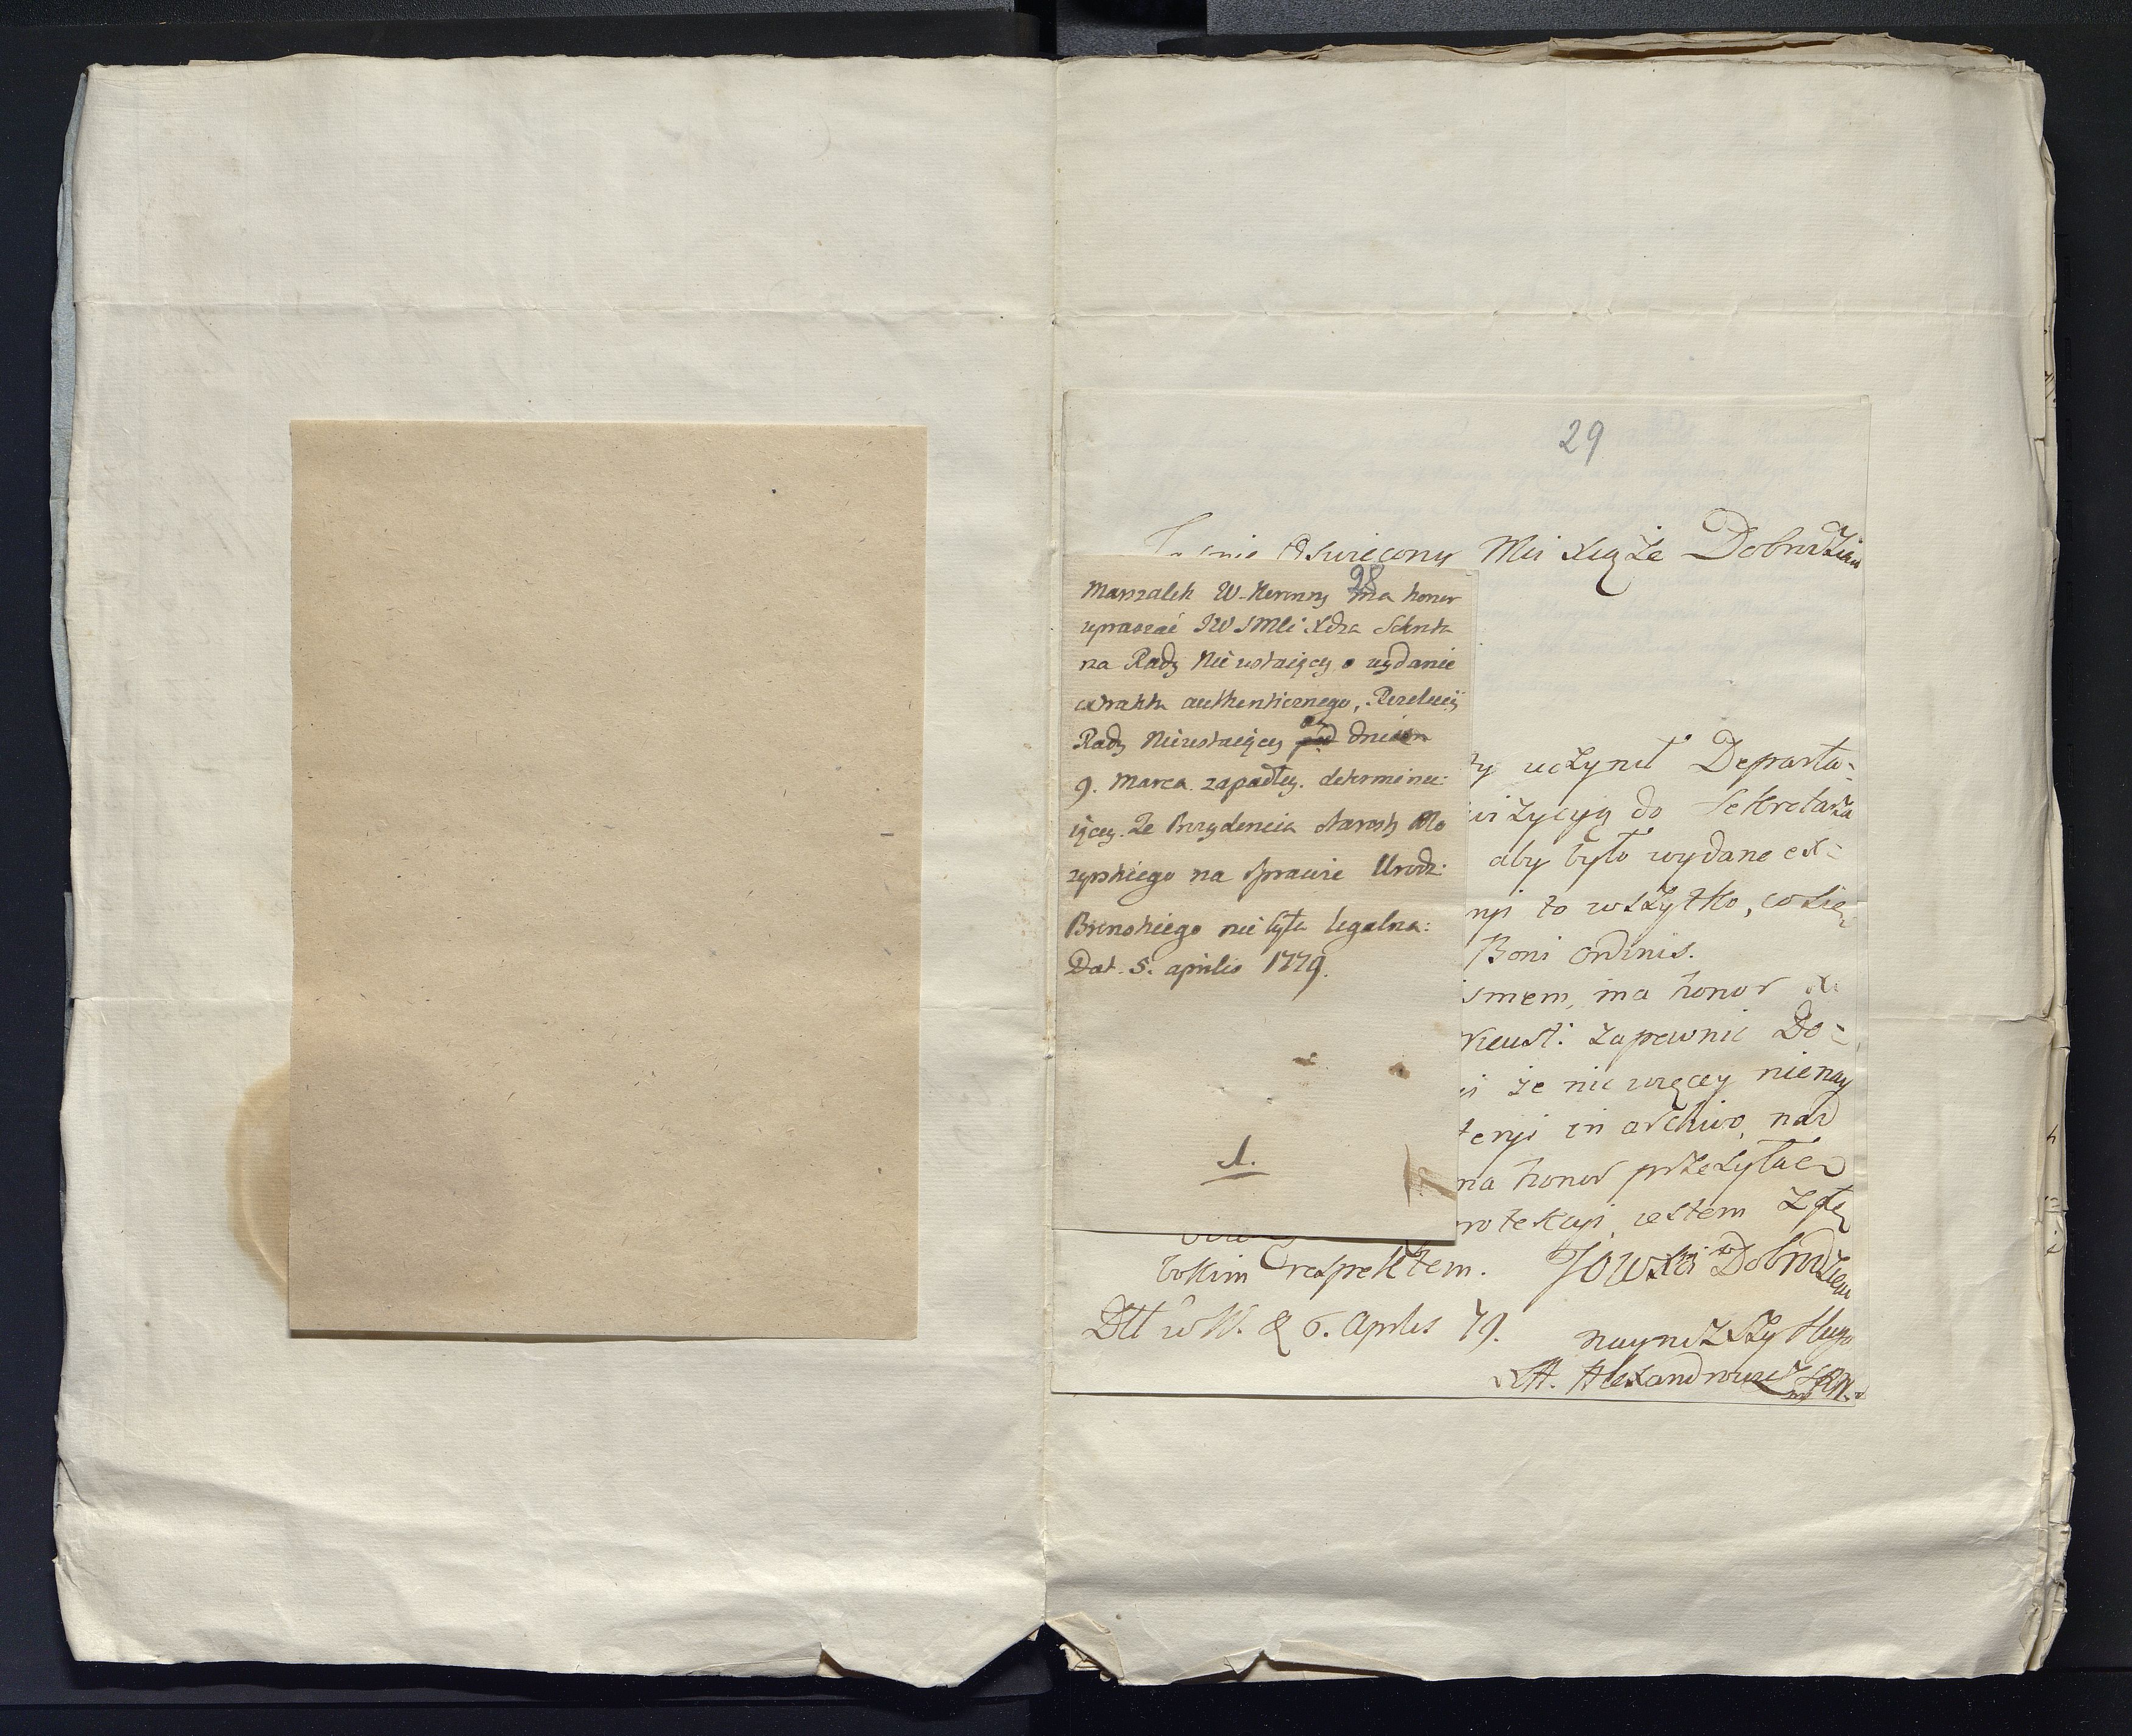 29
Jasnie Oswiecony Mci Xiąże Dobrodzieiu
28
Marszalek W. Koronny ma honor
upraszać JW JMCi Xdza Sekreta
na Rady Nieustaiącey o wydanie
extraktu authenticznego, Rezolucij
Rady Nieustaiącey pod dniem
9. Marca zapadłey. determinu:
iącey. Ze Prezydencia Starosty
zyrskiego na sprawie Urodz:
nie była legalna:
Dat. 5. aprilis 1779.
1.
ty uczynił Departa:
wizycyą do Sekretarza
aby było wydane ex:
to wszytko, co się
Boni ordinis.
ismem, ma honor
Nieust: zapewnić Do:
że nic więcey nienay
in archivo, nad
ma honor przesyłaiąc
protekcyi iestem z głę
bokim respektem. JOWXci Dobrodzieia
Dtt w W. d 6. Aprilis 79. nayniższy sługa
Alexandrowicz